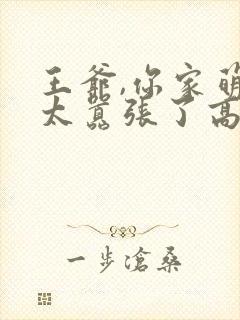 王爺,你家萌
太囂張了高
一步滄桑